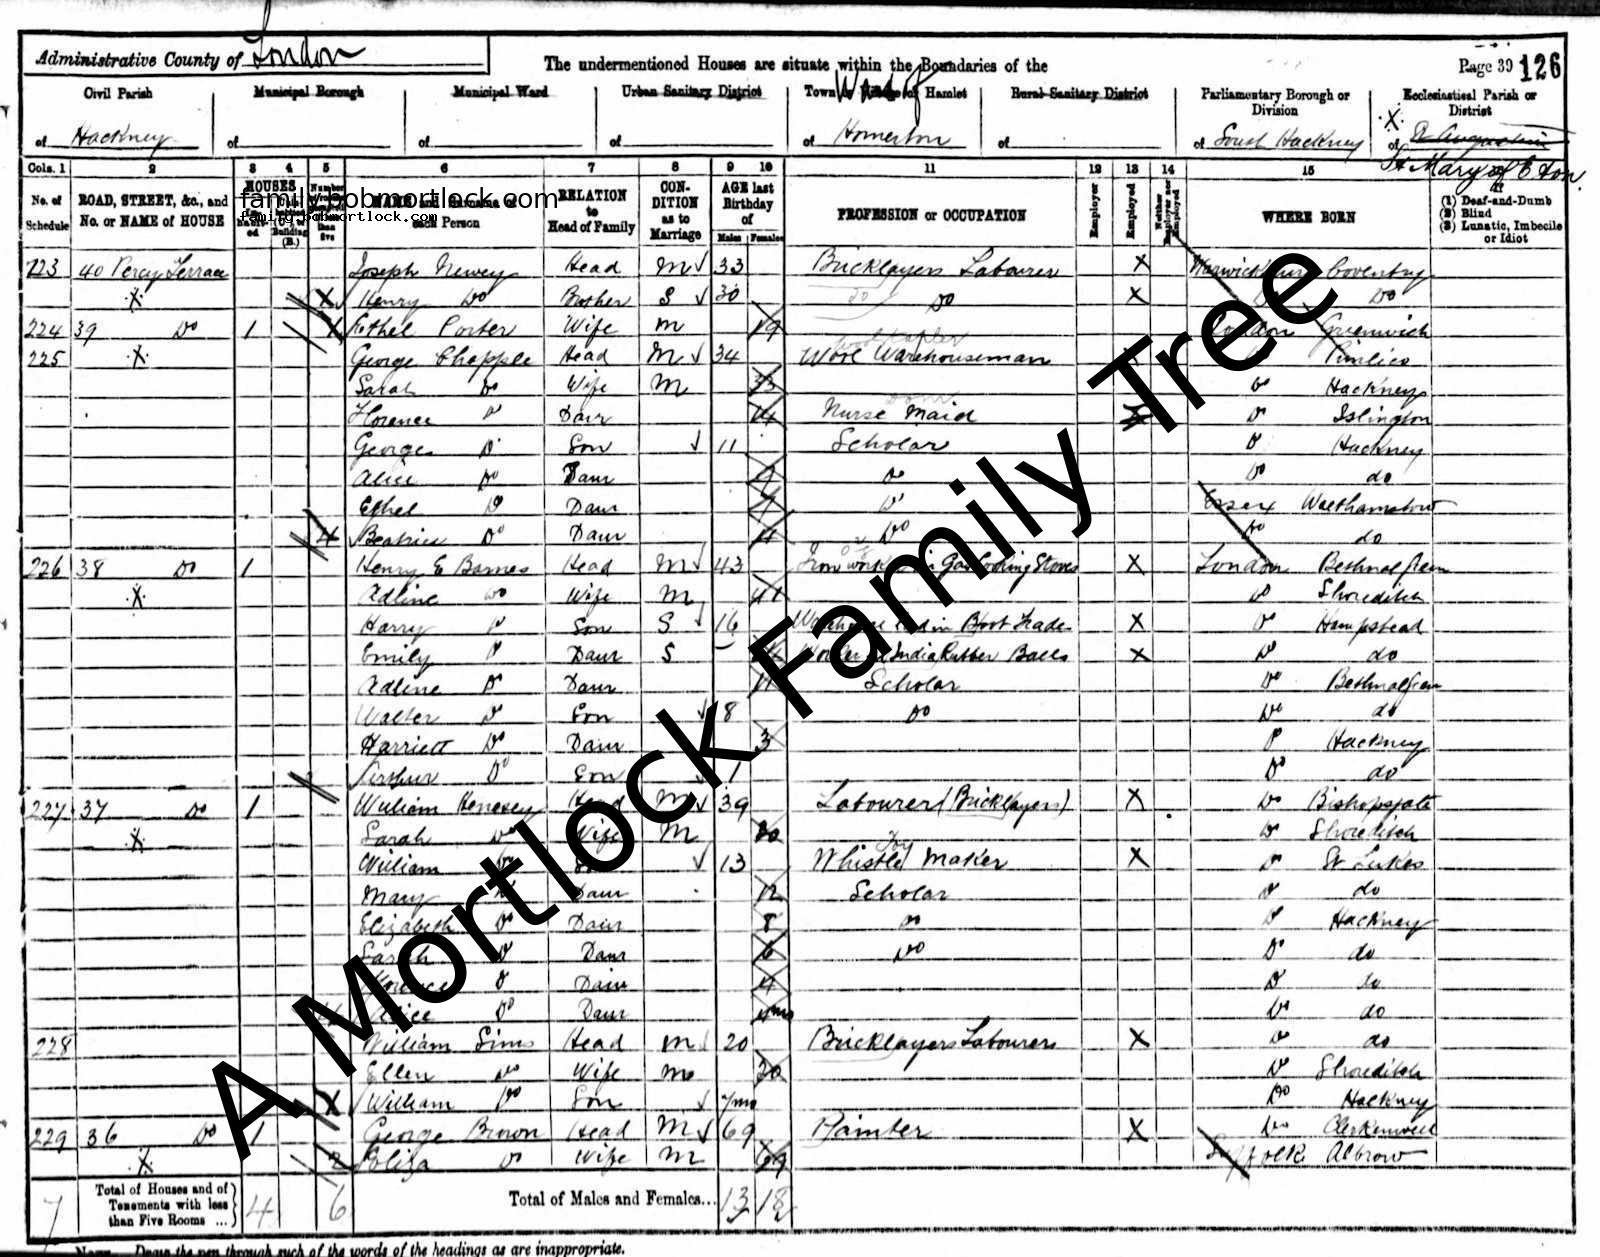 Administrative County of London
The undermentioned Houses are situate within the Boundaries of the
Page 39 126
Civil Parish
Municipal Borough
Municipal Ward
Urban Sanitary District
Town or Hamlet
Ward of
Rural Sanitary District
Parliamentary Borough or Division
Ecclesiastical Parish or District
of Hackney of of of of Homerton of of South Hackney of St Augustine
St Mary of Eton.
Cols. 1 2 3 4 5 6 7 8 9 10 11 12 13 14 15
No. of Schedule
ROAD, STREET, &c., and No. or NAME of HOUSE
HOUSES
family.bobmortlock.com
family.bobmortlock.com
each Person
RELATION to Head of Family
CONDITION as to Marriage
AGE last Birthday of
Males Females
PROFESSION or OCCUPATION
Employer
Employed
Neither Employer nor Employed
WHERE BORN
(1) Deaf-and-Dumb
(2) Blind
(3) Lunatic, Imbecile or Idiot
223 40 Percy Terrace Joseph Newey Head M 33 Bricklayers Labourer X Warwickshire Coventry
X Henry Do Brother S 30 Do X Do Do
224 39 Do 1 Ethel Porter Wife M 19 London Greenwich
225 X George Chapple Head M 34 Wool Warehouseman Pimlico
Sarah Do Wife M 33 Do Hackney
Florence Do Daur 14 Nurse Maid Do Islington
George Do Son 11 Scholar Do Hackney
Alice Do Daur Do Do do
Ethel Do Daur Do Essex Walthamstow
4 Beatrice Do Daur 4 Do Do do
226 38 Do 1 Henry E Barnes Head M 43 Iron work Gas Cooking Stoves X London Bethnal Green
X Adline Do Wife M 41 Do Shoreditch
Harry Do Son S 16 in Boot Trade X Do Hampstead
Emily Do Daur S India Rubber Balls X Do do
Adline Do Daur 11 Scholar Do Bethnal Green
Walter Do Son 8 Do Do do
Harriett Do Daur 3 Do Hackney
Arthur Do Son 1 Do do
227 37 Do 1 William Henesey Head M 39 Labourer (Bricklayers) X Do Bishopsgate
X Sarah Do Wife M 30 Do Shoreditch
William Do Son 13 Toy Whistle Maker X Do St Lukes
Mary Do Daur 12 Scholar Do do
Elizabeth Do Daur 8 Do Do Hackney
Sarah Do Daur 6 Do Do do
Florence Do Daur 4 Do do
Alice Do Daur Do do
228 William Sims Head M 20 Bricklayers Labourers X Do do
Ellen Do Wife M 20 Do Shoreditch
William Do Son 7mo Do Hackney
229 36 Do 1 George Brown Head M 69 Painter X Do Clerkenwell
X 2 Eliza Do Wife M 69 Suffolk
7 Total of Houses and of Tenements with less than Five Rooms ... 4 6 Total of Males and Females... 13 18
Note.—Draw the pen through such of the words of the headings as are inappropriate.
A Mortlock Family Tree